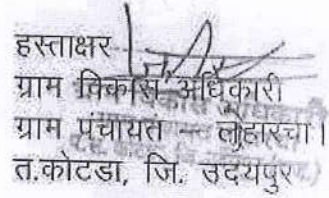 हस्ताक्षर
ग्राम विकास अधिकारी
ग्राम पंचायत – लौहारचा।
त.कोटडा, जि. उदयपुर